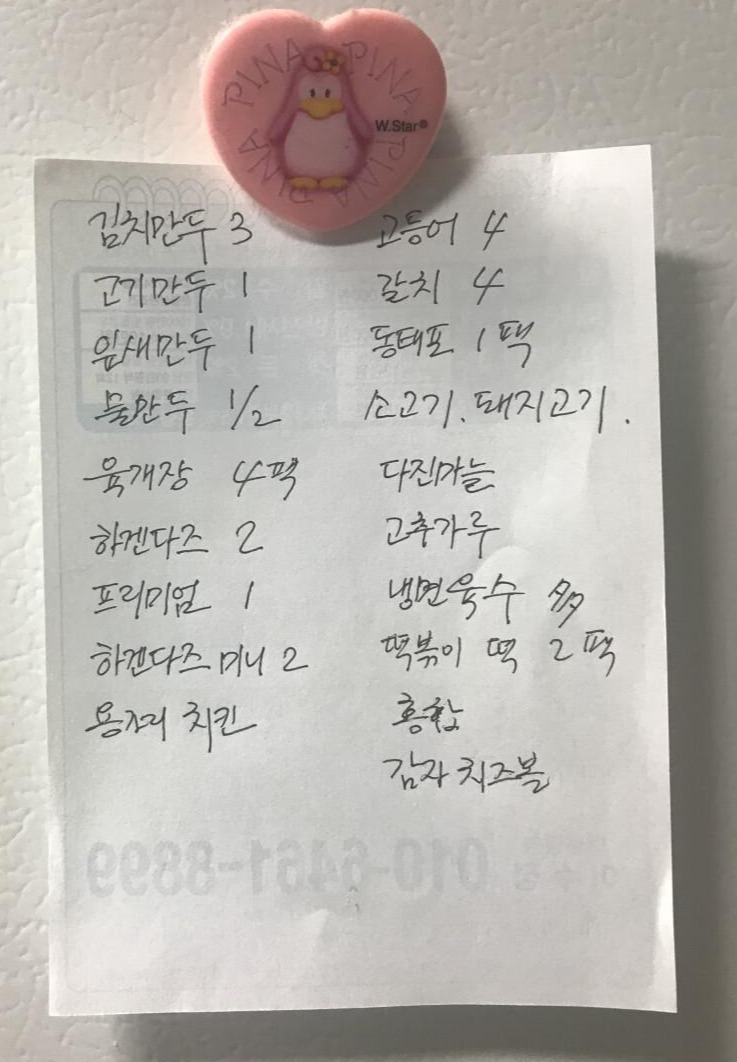 PINA PINA
PINA PINA
W.Star®
김치만두 3
고기만두 1
잎새만두 1
물만두 1/2
육개장 4팩
하겐다즈 2
프리미엄 1
하겐다즈 미니 2
용가리 치킨
고등어 4
갈치 4
동태포 1팩
소고기, 돼지고기.
다진마늘
고추가루
냉면육수 多
떡볶이 떡 2팩
홍합
감자치즈볼
010-6461-8899